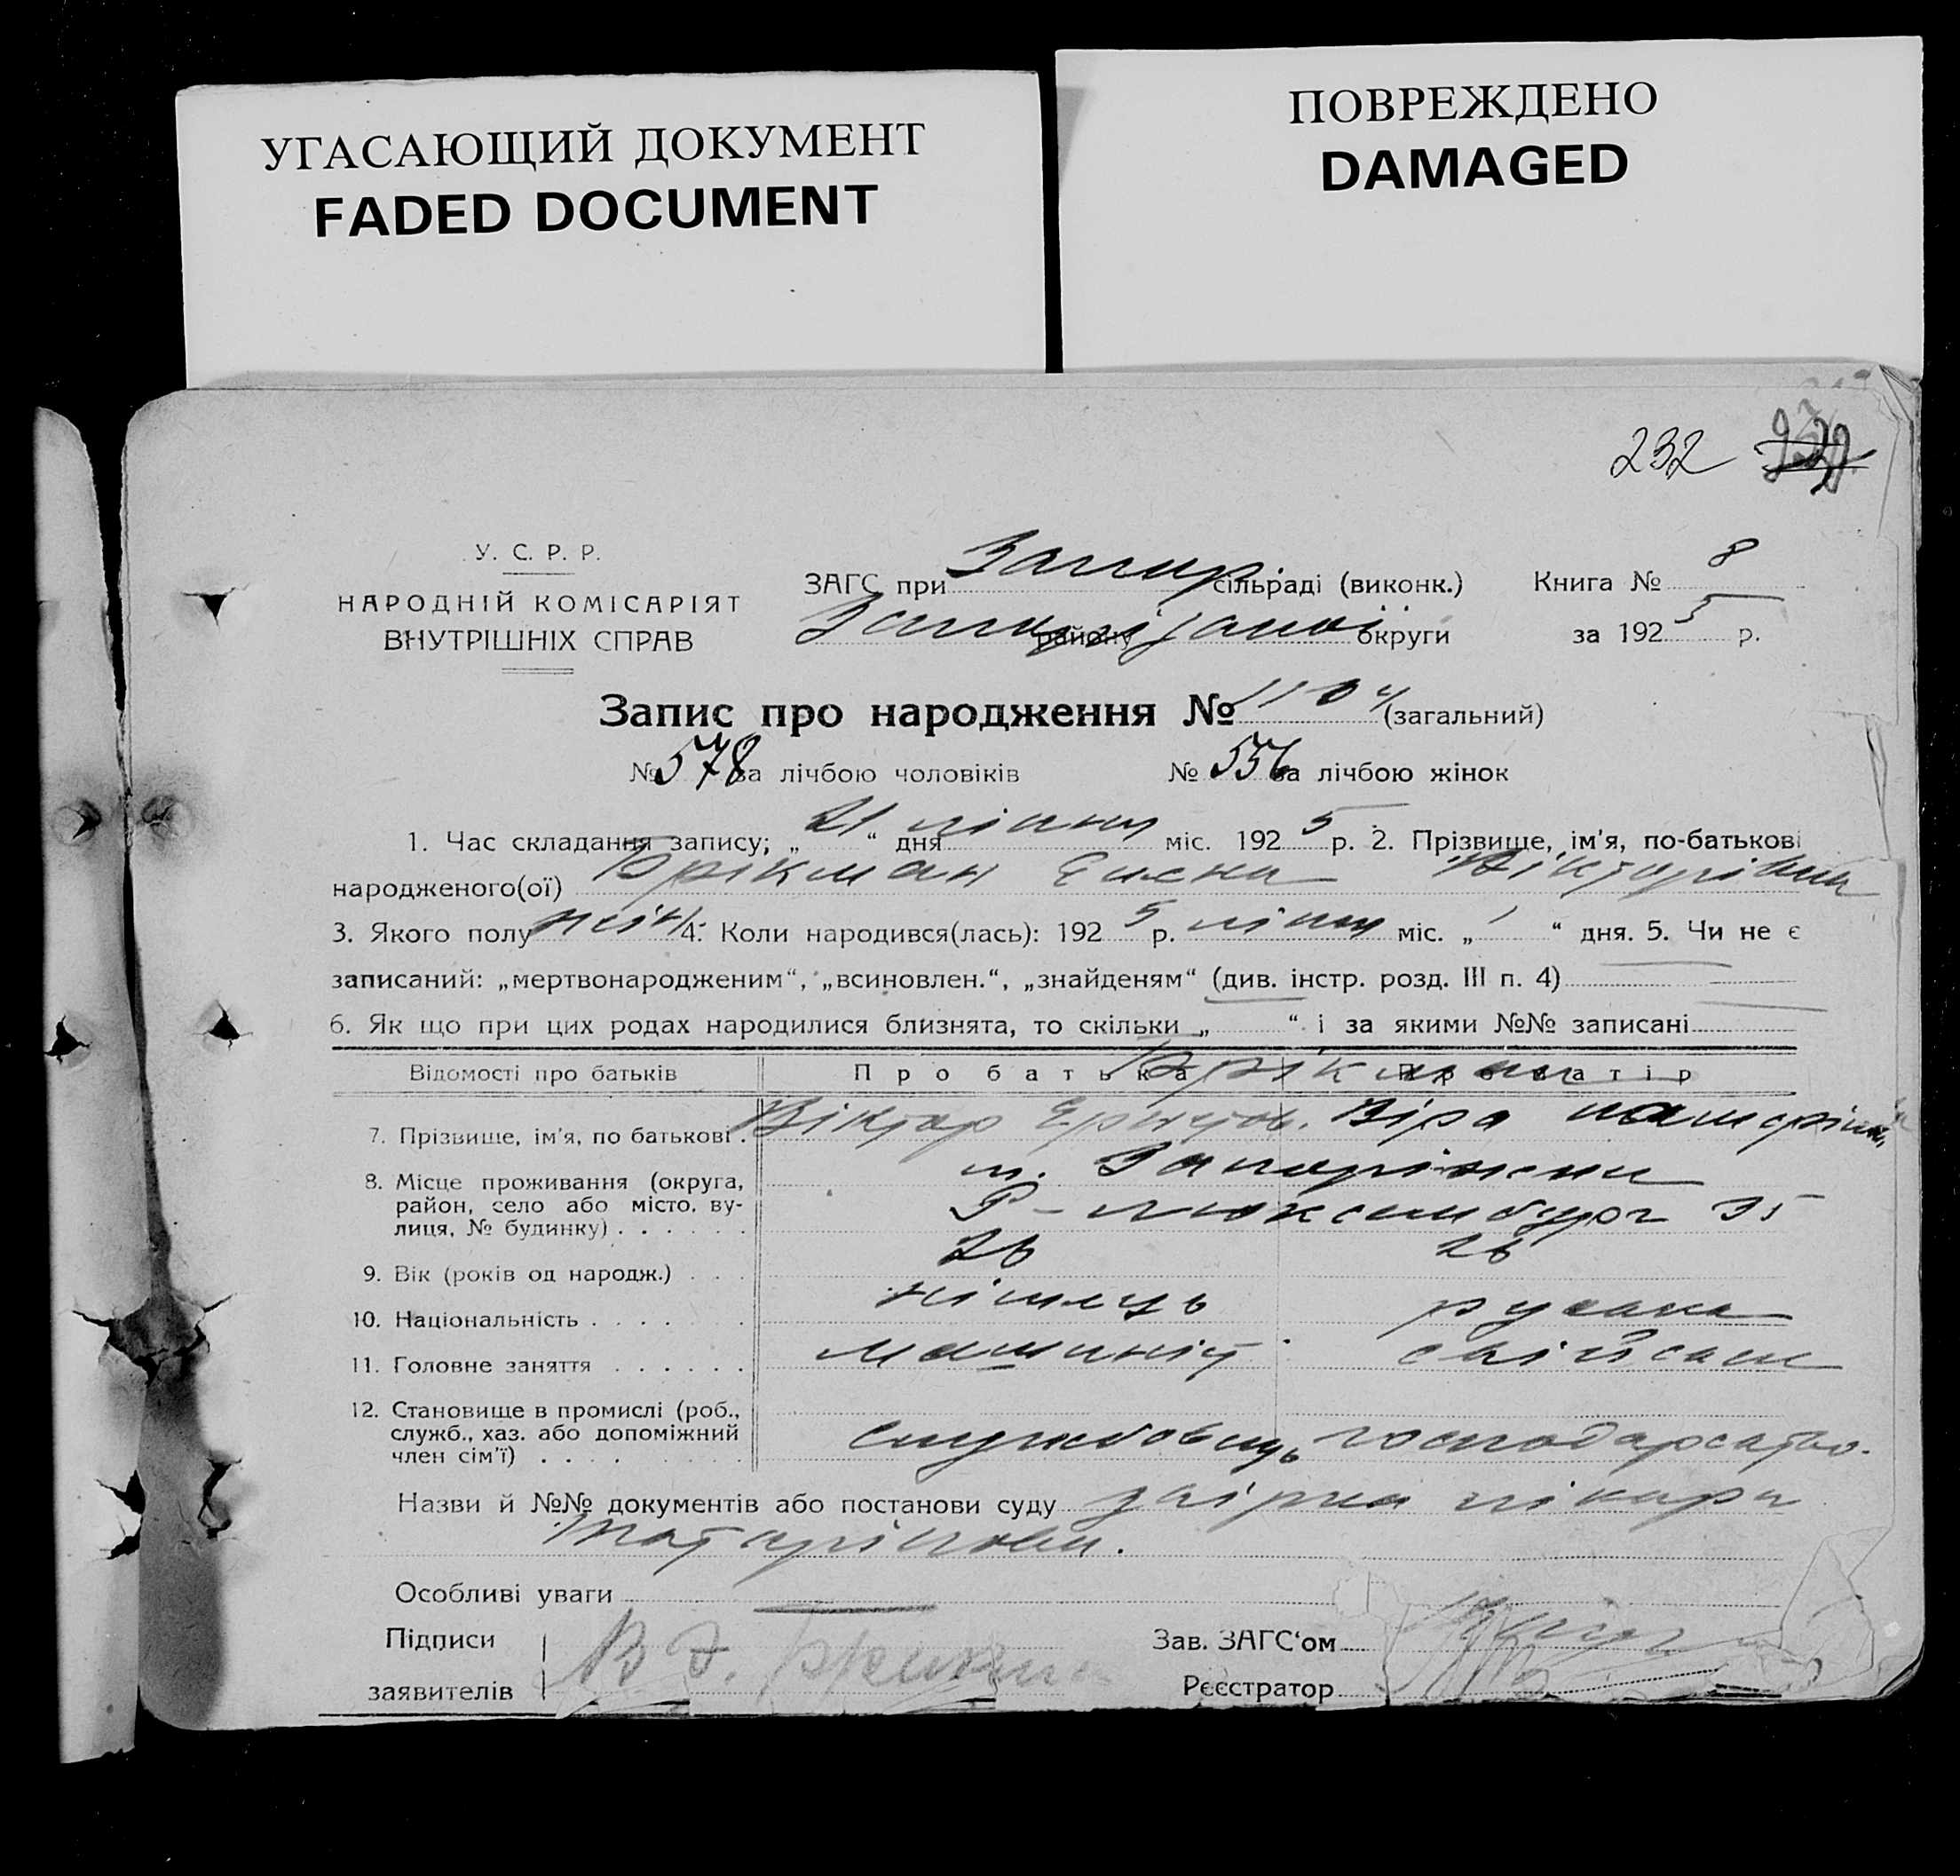 УГАСАЮЩИЙ ДОКУМЕНТ
FADED DOCUMENT
ПОВРЕЖДЕНО
DAMAGED
232
У. С. Р. Р.
НАРОДНІЙ КОМІСАРІЯТ
ВНУТРІШНІХ СПРАВ
ЗАГС при Запор. сільраді (виконк.)
Запорізької району округи
Книга № 8
за 1925 р.
Запис про народження № 1104 (загальний)
№ 578 за лічбою чоловіків № 556 за лічбою жінок
1. Час складання запису; „ 21 “ дня липня міс. 1925 р. 2. Прізвище, ім'я, по-батькові
народженого(ої) Брікман Елена Вікторівна
3. Якого полу жін. 4. Коли народився(лась): 1925 р. липня міс. „ 1 “ дня. 5. Чи не є
записаний: „мертвонародженим“, „всиновлен.“, „знайденям“ (див. інстр. розд. III п. 4)
6. Як що при цих родах народилися близнята, то скільки „ “ і за якими №№ записані
Відомості про батьків Про батька Про матір
Брікман
7. Прізвище, ім'я, по батькові Віктор Ернстов. Віра
8. Місце проживання (округа, район, село або місто, вулиця, № будинку) м. Запоріжжя
Р-Люксембург 35
9. Вік (років од народж.) 26 26
10. Національність німець руська
11. Головне заняття машиніст
12. Становище в промислі (роб., служб., хаз. або допоміжний член сім'ї) службовець господарство.
Назви й №№ документів або постанови суду лікаря
Особливі уваги
Підписи
заявителів
В Э. Брикман
Зав. ЗАГС‘ом
Реєстратор